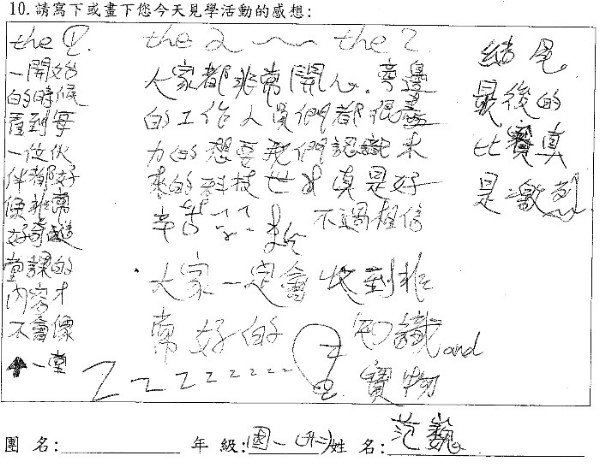 10.請寫下或畫下您今天見學活動的感想:
the 1.
一開始
的時候
看到每
一位伙
伴都好
像非常
好奇這
堂課的
內容才
不會像
一堂
the 2 the 2.
大家都非常開心.旁邊
的工作人員們都很盡
力的想要我們認識未
來的科技世界真是好
辛苦 不過相信
大家一定會收到非
常好的 知識 and
寶物
結尾
最後的
比賽真
是激烈
團 名: 年 級:國一(升二)姓 名:范巍